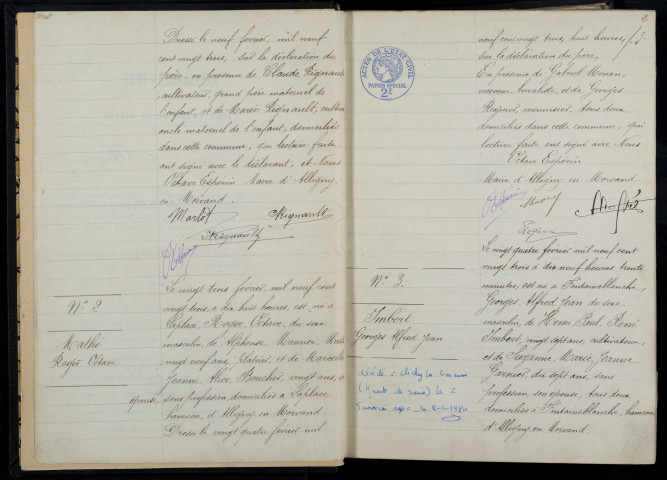 Dressé le neuf février, mil neuf
cent vingt trois, sur la déclaration du
père, en présence de Claude Rignault
cultivateur, grand père maternel de
l'enfant, et de Marie Rignault,
oncle maternel de l'enfant, domiciliés
dans cette commune, qui lecture faite,
ont signé avec le déclarant, et Nous
Octave Esprin Maire d'Alligny
en Morvand.
Marlot Rignault
Rignault
N° 2
Mathé
Roger Octave
Le vingt trois février, mil neuf cent
vingt trois, à dix huit heures, est né à
Laplace, Roger, Octave, du sexe
masculin, de Alphonse, Maurice
vingt neuf ans, et de Marcelle
Jeanne, Alice Boucher, vingt ans,
épouse,
sans profession domiciliés à Laplace
hameau, d'Alligny en Morvand.
Dressé le vingt quatre février mil
2
neuf cent vingt trois, huit heures,
sur la déclaration du père,
En présence de Gabriel
buraliste, et de Georges
menuisier, tous deux
domiciliés dans cette commune, qui
lecture faite, ont signé avec Nous
Octave Esprin
Maire d'Alligny en Morvand
ACTES DE L'ETAT CIVIL
PAPIER SPECIAL
2F
N° 3.
Imbert
Georges Alfred Jean
décédé à Clichy la Garenne
(Hauts de Seine) le 2
Janvier 1980
Le vingt quatre février mil neuf cent
vingt trois à dix neuf heures trente
minutes, est né à Fontaineblanche,
Georges Alfred Jean du sexe
masculin, de Henri Paul, René
Imbert, vingt sept ans, cultivateur,
et de Suzanne, Marie, Jeanne
Garnier, dix sept ans, sans
profession, son épouse, tous deux
domiciliés à Fontaineblanche, hameau
d'Alligny en Morvand